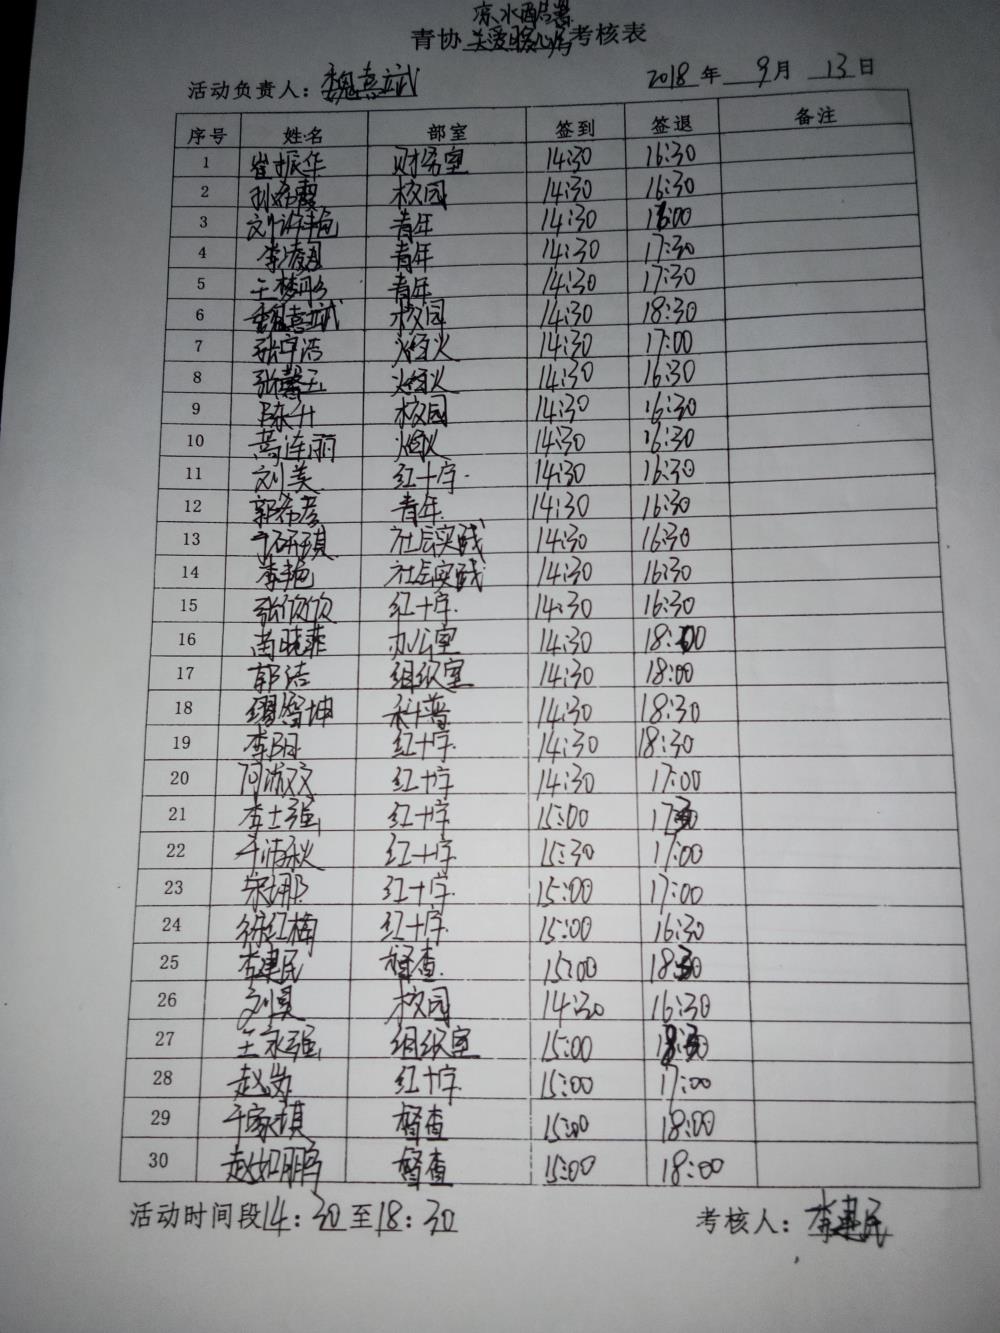 凉水酷暑
青协 关爱暖心房 考核表
活动负责人：魏熹斌 2018 年 9 月 13 日
序号 姓名 部室 签到 签退 备注
1 崔振华 财务室 14:30 16:30
2 校园 14:30 16:30
3 刘许艳 青年 14:30 18:00
4 青年 14:30 17:30
5 王梦彤 青年 14:30 17:30
6 魏熹斌 校园 14:30 18:30
7 张宇浩 14:30 17:00
8 张馨玉 14:30 16:30
9 陈什 校园 14:30 16:30
10 高连丽 14:30 16:30
11 刘美 红十字 14:30 16:30
12 郭希彦 青年 14:30 16:30
13 社会实践 14:30 16:30
14 李艳 社会实践 14:30 16:30
15 张欣欣 红十字 14:30 16:30
16 苗晓菲 办公室 14:30 18:00
17 郭洁 组织室 14:30 18:00
18 科普 14:30 18:30
19 李阳 红十字 14:30 18:30
20 红十字 14:30 17:00
21 李士强 红十字 15:00
22 红十字 15:30 17:00
23 宋娜 红十字 15:00 17:00
24 徐红梅 红十字 15:00 16:30
25 李建民 督查 15:00 18:30
26 校园 14:30 16:30
27 王永强 组织室 15:00 18:30
28 红十字 15:00 17:00
29 于家祺 督查 15:00 18:00
30 赵如鹏 督查 15:00 18:00
活动时间段14：30 至18：30 考核人：李建民